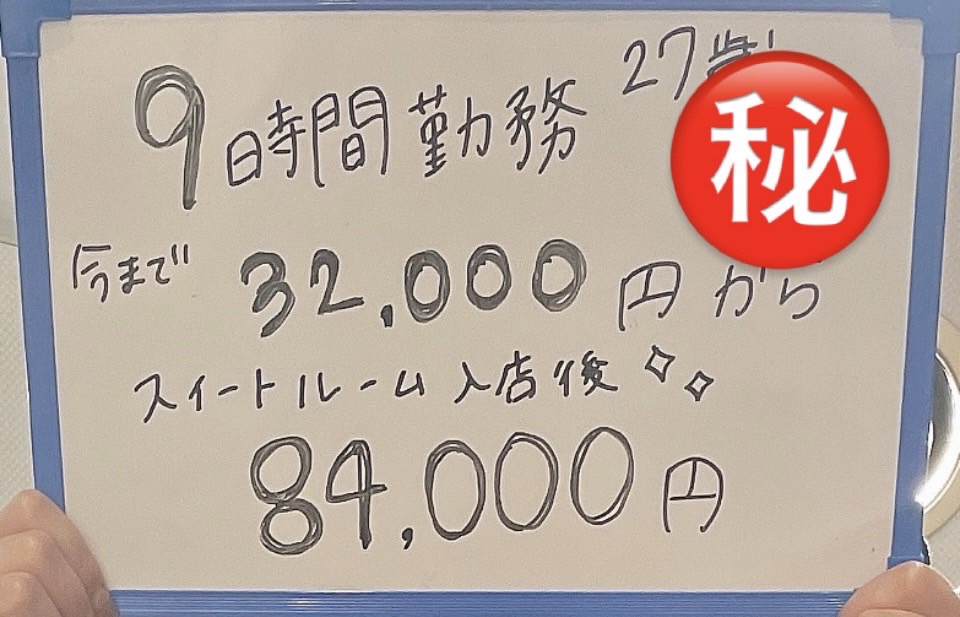 27歳!
9時間勤務
㊙
今まで 32,000円から
スイートルーム入店後
84,000円